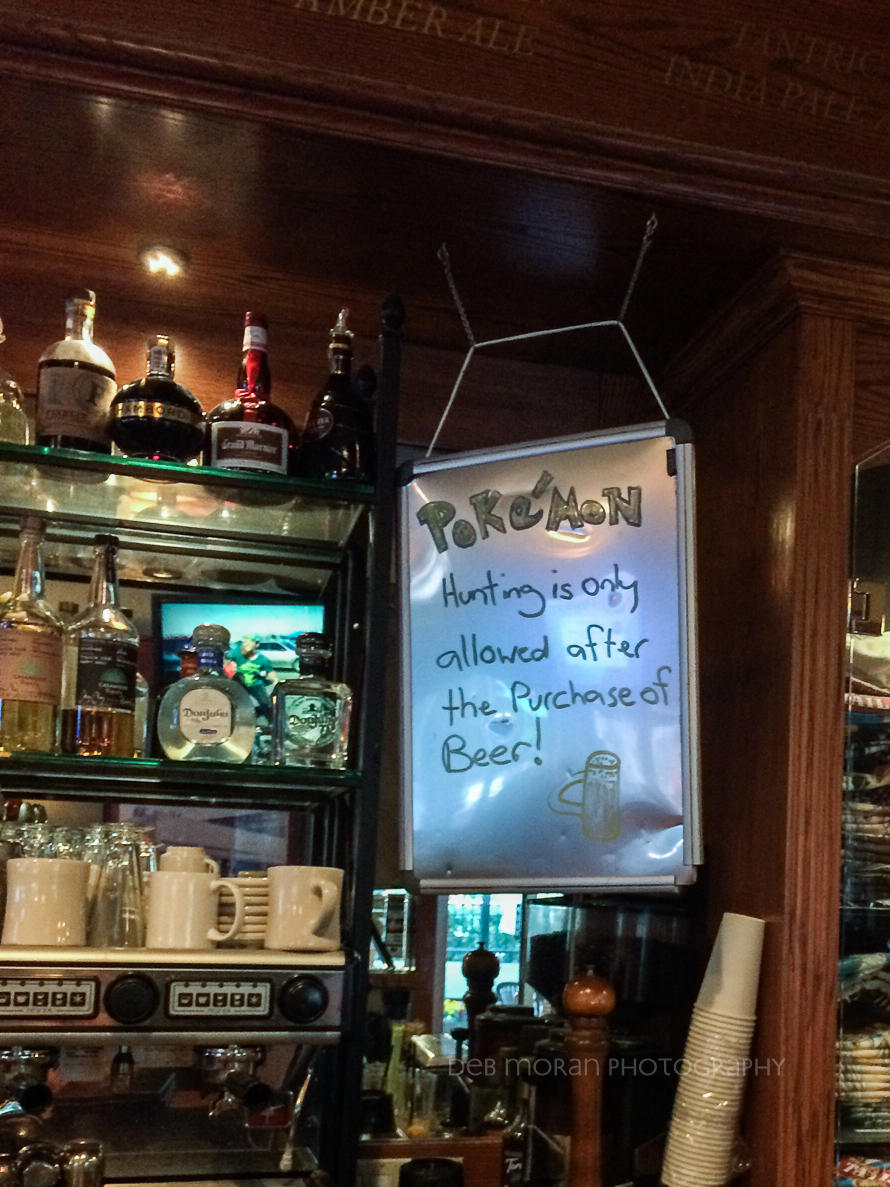 AMBER ALE
TANTRIC
INDIA PALE
CHAMBORD
Grand Marnier
POKéMON
Hunting is only
allowed after
the Purchase of
Beer!
Don Julio
Don Julio
DEB MORAN PHOTOGRAPHY